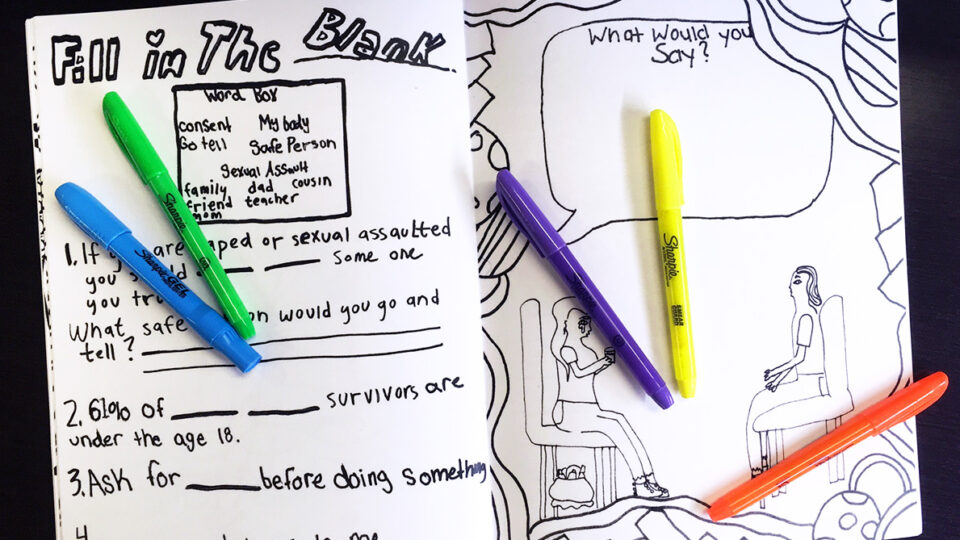 Fill in The Blank
Word Box
consent My body
Go tell Safe Person
Sexual Assault
family dad cousin
friend teacher
mom
1. If are or sexual assaulted
you ___ some one
you
What safe would you go and
tell?
2. 61% of ___ ___ survivors are
under the age 18.
3. Ask for ___ before doing something
What Would you
Say?
Sharpie
Sharpie GEL
Sharpie
SMEAR GUARD